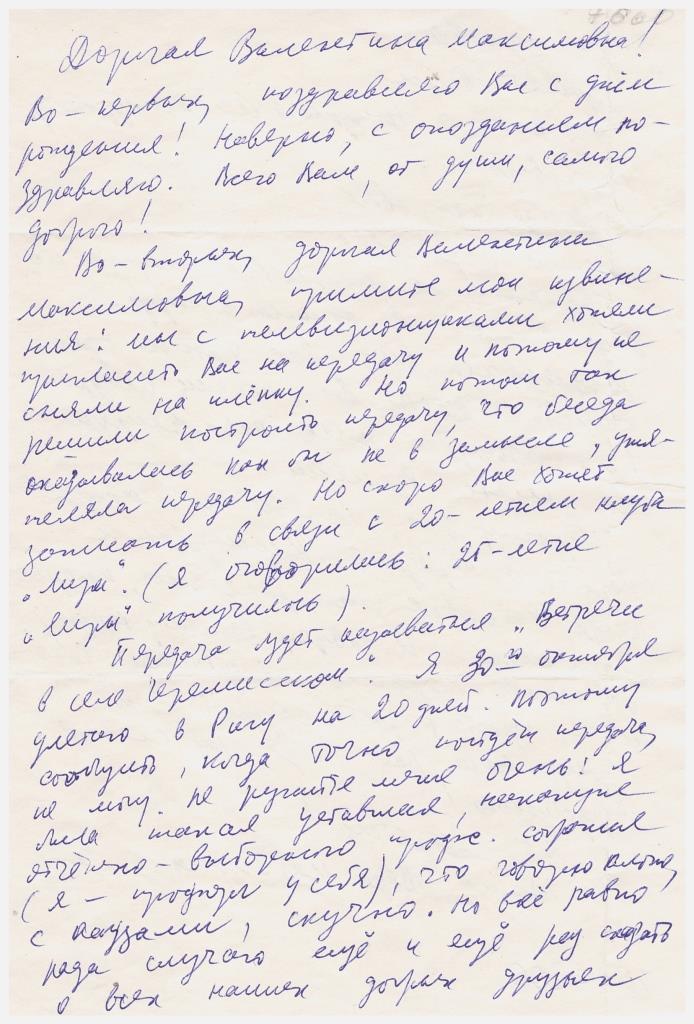 Дорогая Валентина Максимовна!
Во-первых, поздравляю Вас с днём
рождения! Наверно, с опозданием по-
здравляю. Всего Вам, от души, самого
доброго!
Во-вторых, дорогая Валентина
Максимовна, примите мои извине-
ния: мы с телевизионщиками хотели
пригласить Вас на передачу и потому не
сняли на плёнку. Но потом так
решили построить передачу, что беседа
оказывалась как бы не в замысле, утя-
желяла передачу. Но скоро Вас хотят
записать в связи с 20-летием клуба
„Лиры“. (Я оговорилась: 25-летие
„Лиры“ получилось).
Передача будет называться „Встречи
в селе Черемисском“. Я 30го октября
улетаю в Ригу на 20 дней. Поэтому
сообщить, когда точно пойдёт передача,
не могу. Не ругайте меня очень! Я
была такая уставшая, накануне
отчётно-выборного профс. собрания
(я – профорг у себя), что говорю плохо,
с паузами, скучно. Но всё равно
рада случаю ещё и ещё раз сказать
о всех наших добрых друзьях